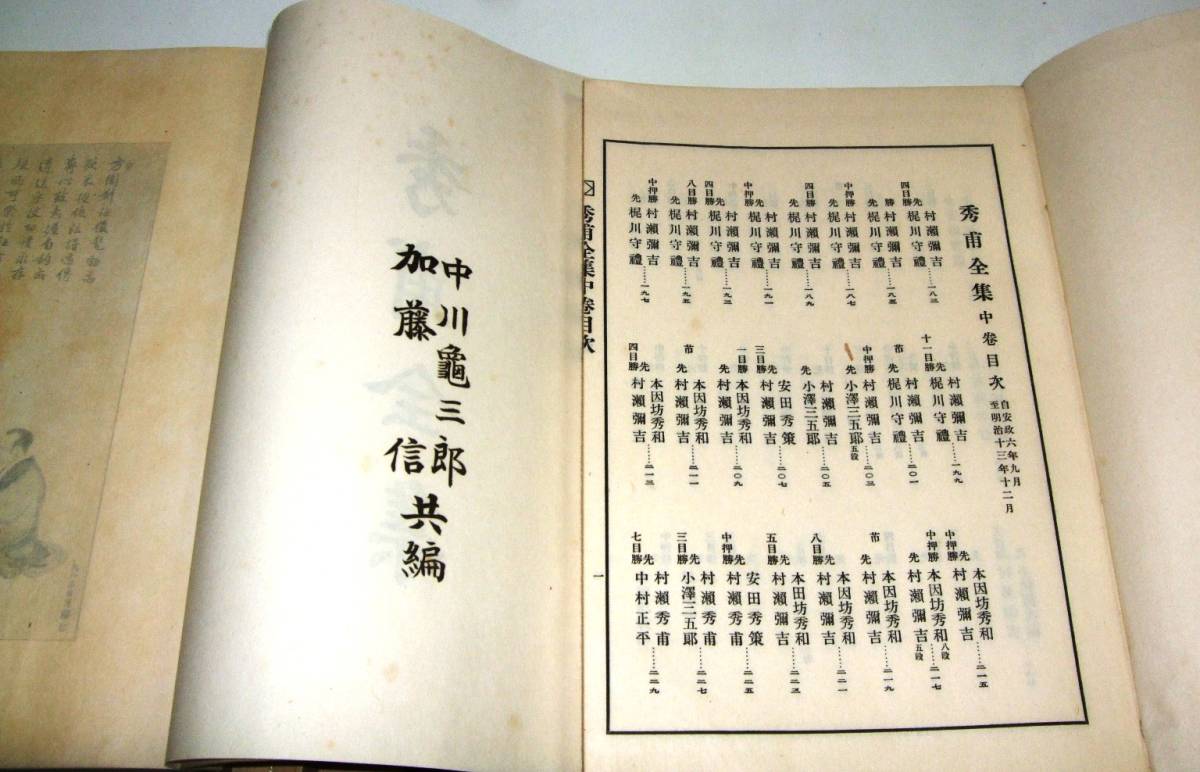 秀甫全集 中卷目次 自安政六年九月
至明治十三年十二月
村瀨彌吉……一八三
四目勝 先 梶川守禮
勝 村瀨彌吉……一八五
先 梶川守禮
中押勝 村瀨彌吉……一八七
先 梶川守禮
四目勝 村瀨彌吉……一八九
先 梶川守禮
村瀨彌吉……一九一
中押勝 先 梶川守禮
村瀨彌吉……一九三
四目勝 先 梶川守禮
八目勝 村瀨彌吉……一九五
先 梶川守禮
中押勝 村瀨彌吉……一九七
先 梶川守禮
村瀨彌吉……一九九
十一目勝 先 梶川守禮
村瀨彌吉……二〇一
芇 先 梶川守禮
中押勝 村瀨彌吉……二〇三
先 小澤三五郎五段
村瀨彌吉……二〇五
先 小澤三五郎
安田秀策……二〇七
三目勝 先 村瀨彌吉
一目勝 本因坊秀和……二〇九
先 村瀨彌吉
芇 本因坊秀和……二一一
先 村瀨彌吉
本因坊秀和……二一三
四目勝 先 村瀨彌吉
本因坊秀和……二一五
中押勝 先 村瀨彌吉
中押勝 本因坊秀和八段……二一七
先 村瀨彌吉五段
芇 本因坊秀和……二一九
先 村瀨彌吉
本因坊秀和……二二一
八目勝 先 村瀨彌吉
本田坊秀和……二二三
五目勝 先 村瀨彌吉
安田秀策……二二五
中押勝 先 村瀨秀甫
村瀨秀甫……二二七
三目勝 先 小澤三五郎
村瀨秀甫……二二九
七目勝 先 中村正平
秀甫全集中卷目次
一
中川龜三郎
加藤信 共編